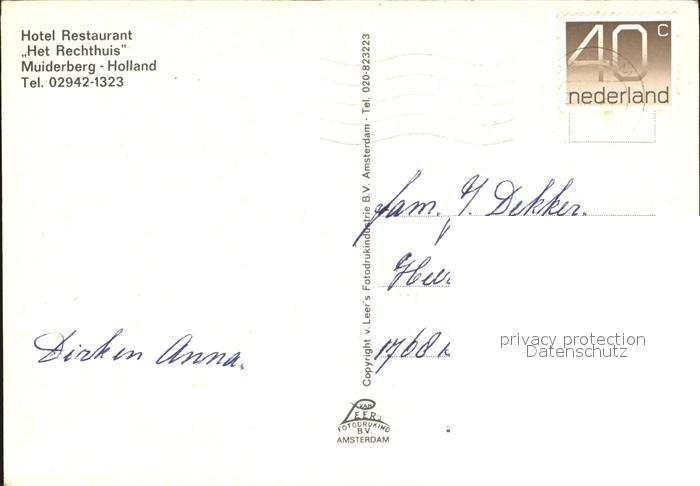 Hotel Restaurant
„Het Rechthuis"
Muiderberg - Holland
Tel. 02942-1323
40 c
nederland
Copyright v. Leer's Fotodrukindustrie B.V. Amsterdam - Tel. 020-823223
fam. Y. Dekker.
1768
privacy protection
Datenschutz
Dirk en Anna.
VAN
LEER'S
FOTODRUKIND
B.V.
AMSTERDAM